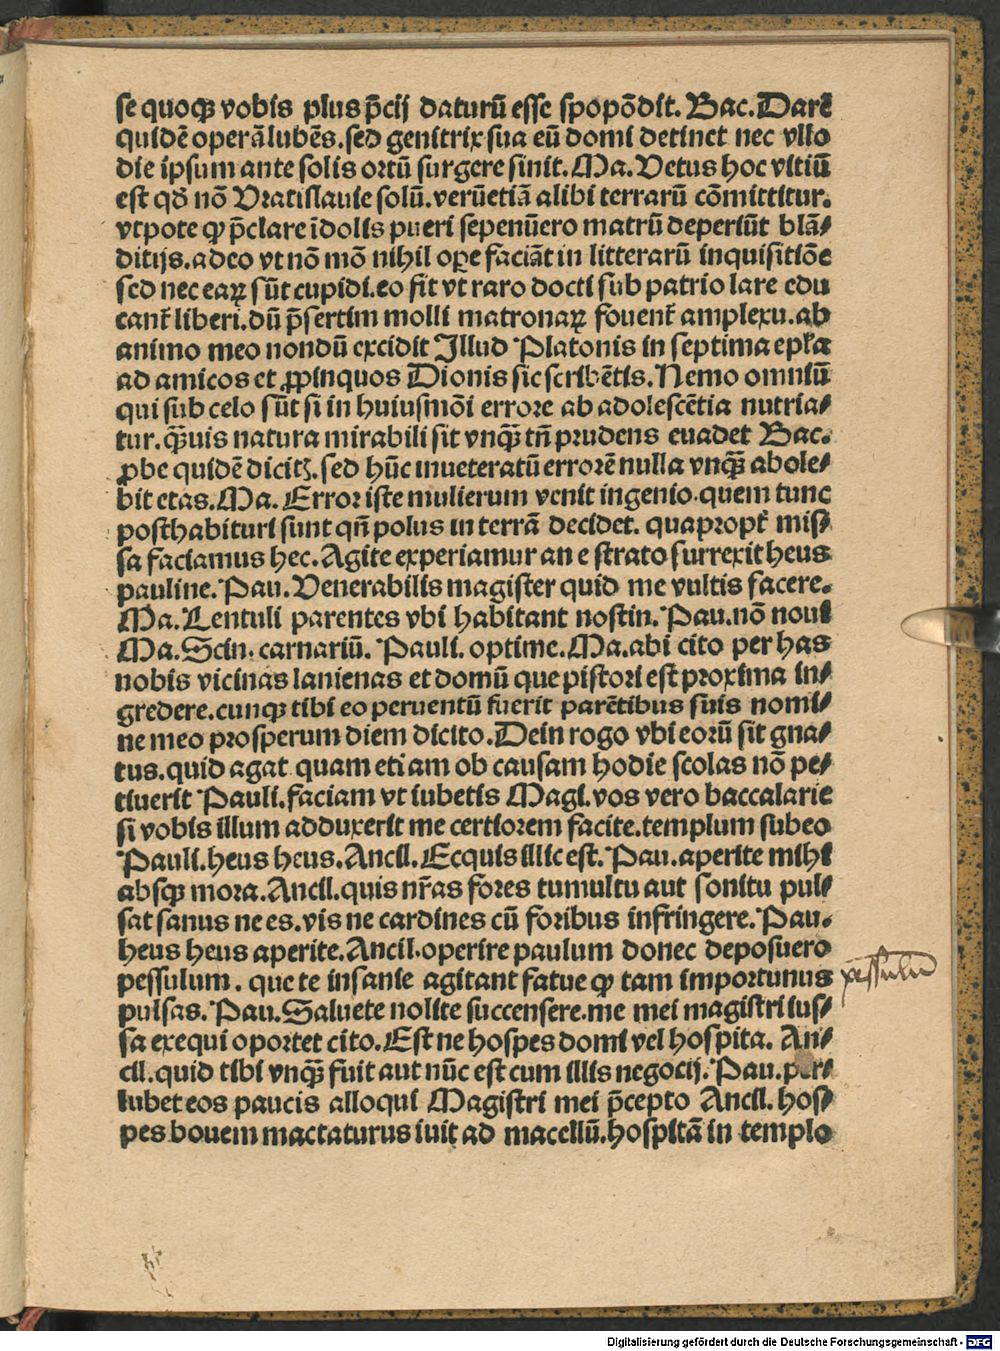 se quoqꝫ vobis plus p̄cij daturū esse spopōdit. Bac. Dare
quidē operā lubēs. sed genitrix sua eū domi detinet nec vllo
die ipsum ante solis ortū surgere sinit. Ma. Vetus hoc vitiū
est qđ nō Vratislauie solū. verūetiā alibi terrarū cōmittitur.
vtpote ꝙ p̄clare īdolis pueri sepenūero matrū deperiūt blā⸗
ditijs. adeo vt nō mō nihil oꝑe faciāt in litterarū inquisitiōe
sed nec eaꝝ sūt cupidi. eo fit vt raro docti sub patrio lare edu
cant᷑ liberi. dū p̄sertim molli matronaꝝ fouent᷑ amplexu. ab
animo meo nondū excidit Illud Platonis in septima epl̄a
ad amicos et ꝓpinquos Dionis sic scribētis. Nemo omniū
qui sub celo sūt si in huiusmōi errore ab adolescētia nutria⸗
tur. qꝫuis natura mirabili sit vnqꝫ tn̄ prudens euadet Bac.
ꝓbe quidē dicitꝫ. sed hūc inueteratū errorē nulla vnqꝫ abole⸗
bit etas. Ma. Error iste mulierum venit ingenio. quem tunc
posthabituri sunt qn̄ polus in terrā decidet. quapropt᷑ mis⸗
sa faciamus hec. Agite experiamur an e strato surrexit heus
pauline. Pau. Venerabilis magister quid me vultis facere.
Ma. Lentuli parentes vbi habitant nostin. Pau. nō noui
Ma. Scin. carnariū. Pauli. optime. Ma. abi cito per has
nobis vicinas lanienas et domū que pistori est proxima in⸗
gredere. cunqꝫ tibi eo peruentū fuerit parētibus suis nomi⸗
ne meo prosperum diem dicito. Dein rogo vbi eorū sit gna⸗
tus. quid agat quam etiam ob causam hodie scolas nō pe⸗
tiuerit Pauli. faciam vt iubetis Magi. vos vero baccalarie
si vobis illum adduxerit me certiorem facite. templum subeo
Pauli. heus heus. Ancil. Ecquis illic est. Pau. aperite mihi
absqꝫ mora. Ancil. quis nr̄as fores tumultu aut sonitu pul⸗
sat sanus ne es. vis ne cardines cū foribus infringere. Pau.
heus heus aperite. Ancil. operire paulum donec deposuero
pessulum. que te insanie agitant fatue ꝙ tam importunus
pulsas. Pau. Saluete nolite succensere. me mei magistri ius⸗
sa exequi oportet cito. Est ne hospes domi vel hospita. An⸗
cil. quid tibi vnqꝫ fuit aut nūc est cum illis negocij. Pau. per⸗
lubet eos paucis alloqui Magistri mei p̄cepto Ancil. hos⸗
pes bouem mactaturus iuit ad macellū. hospitā in templo
pessulū
Digitalisierung gefördert durch die Deutsche Forschungsgemeinschaft - DFG